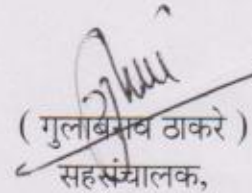 ( गुलाबराव ठाकरे )
सहसंचालक,